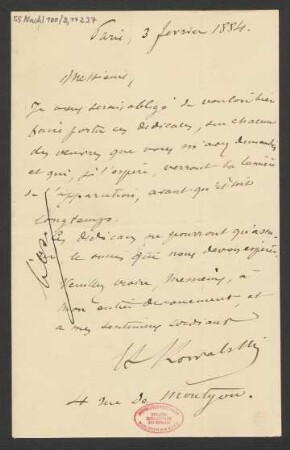 55 Nachl 100/B,
Paris, 3 fevrier 1884.
Messieurs,
Je vous serais obligé de vouloir bien
faire porter ces dédicaces, sur chacun
des œuvres que vous m'avez demandées
et qui, je l'espère, verront la lumière
de l'apparution, avant qu'il soit
longtemps.
Ces dédicaces ne pourront qu'
le succès que nous devons espérer.
Veuillez croire, Messieurs, à
mon entier devouement et
à mes sentiments cordiaux
H Kowalski
4 rue de Montyon.